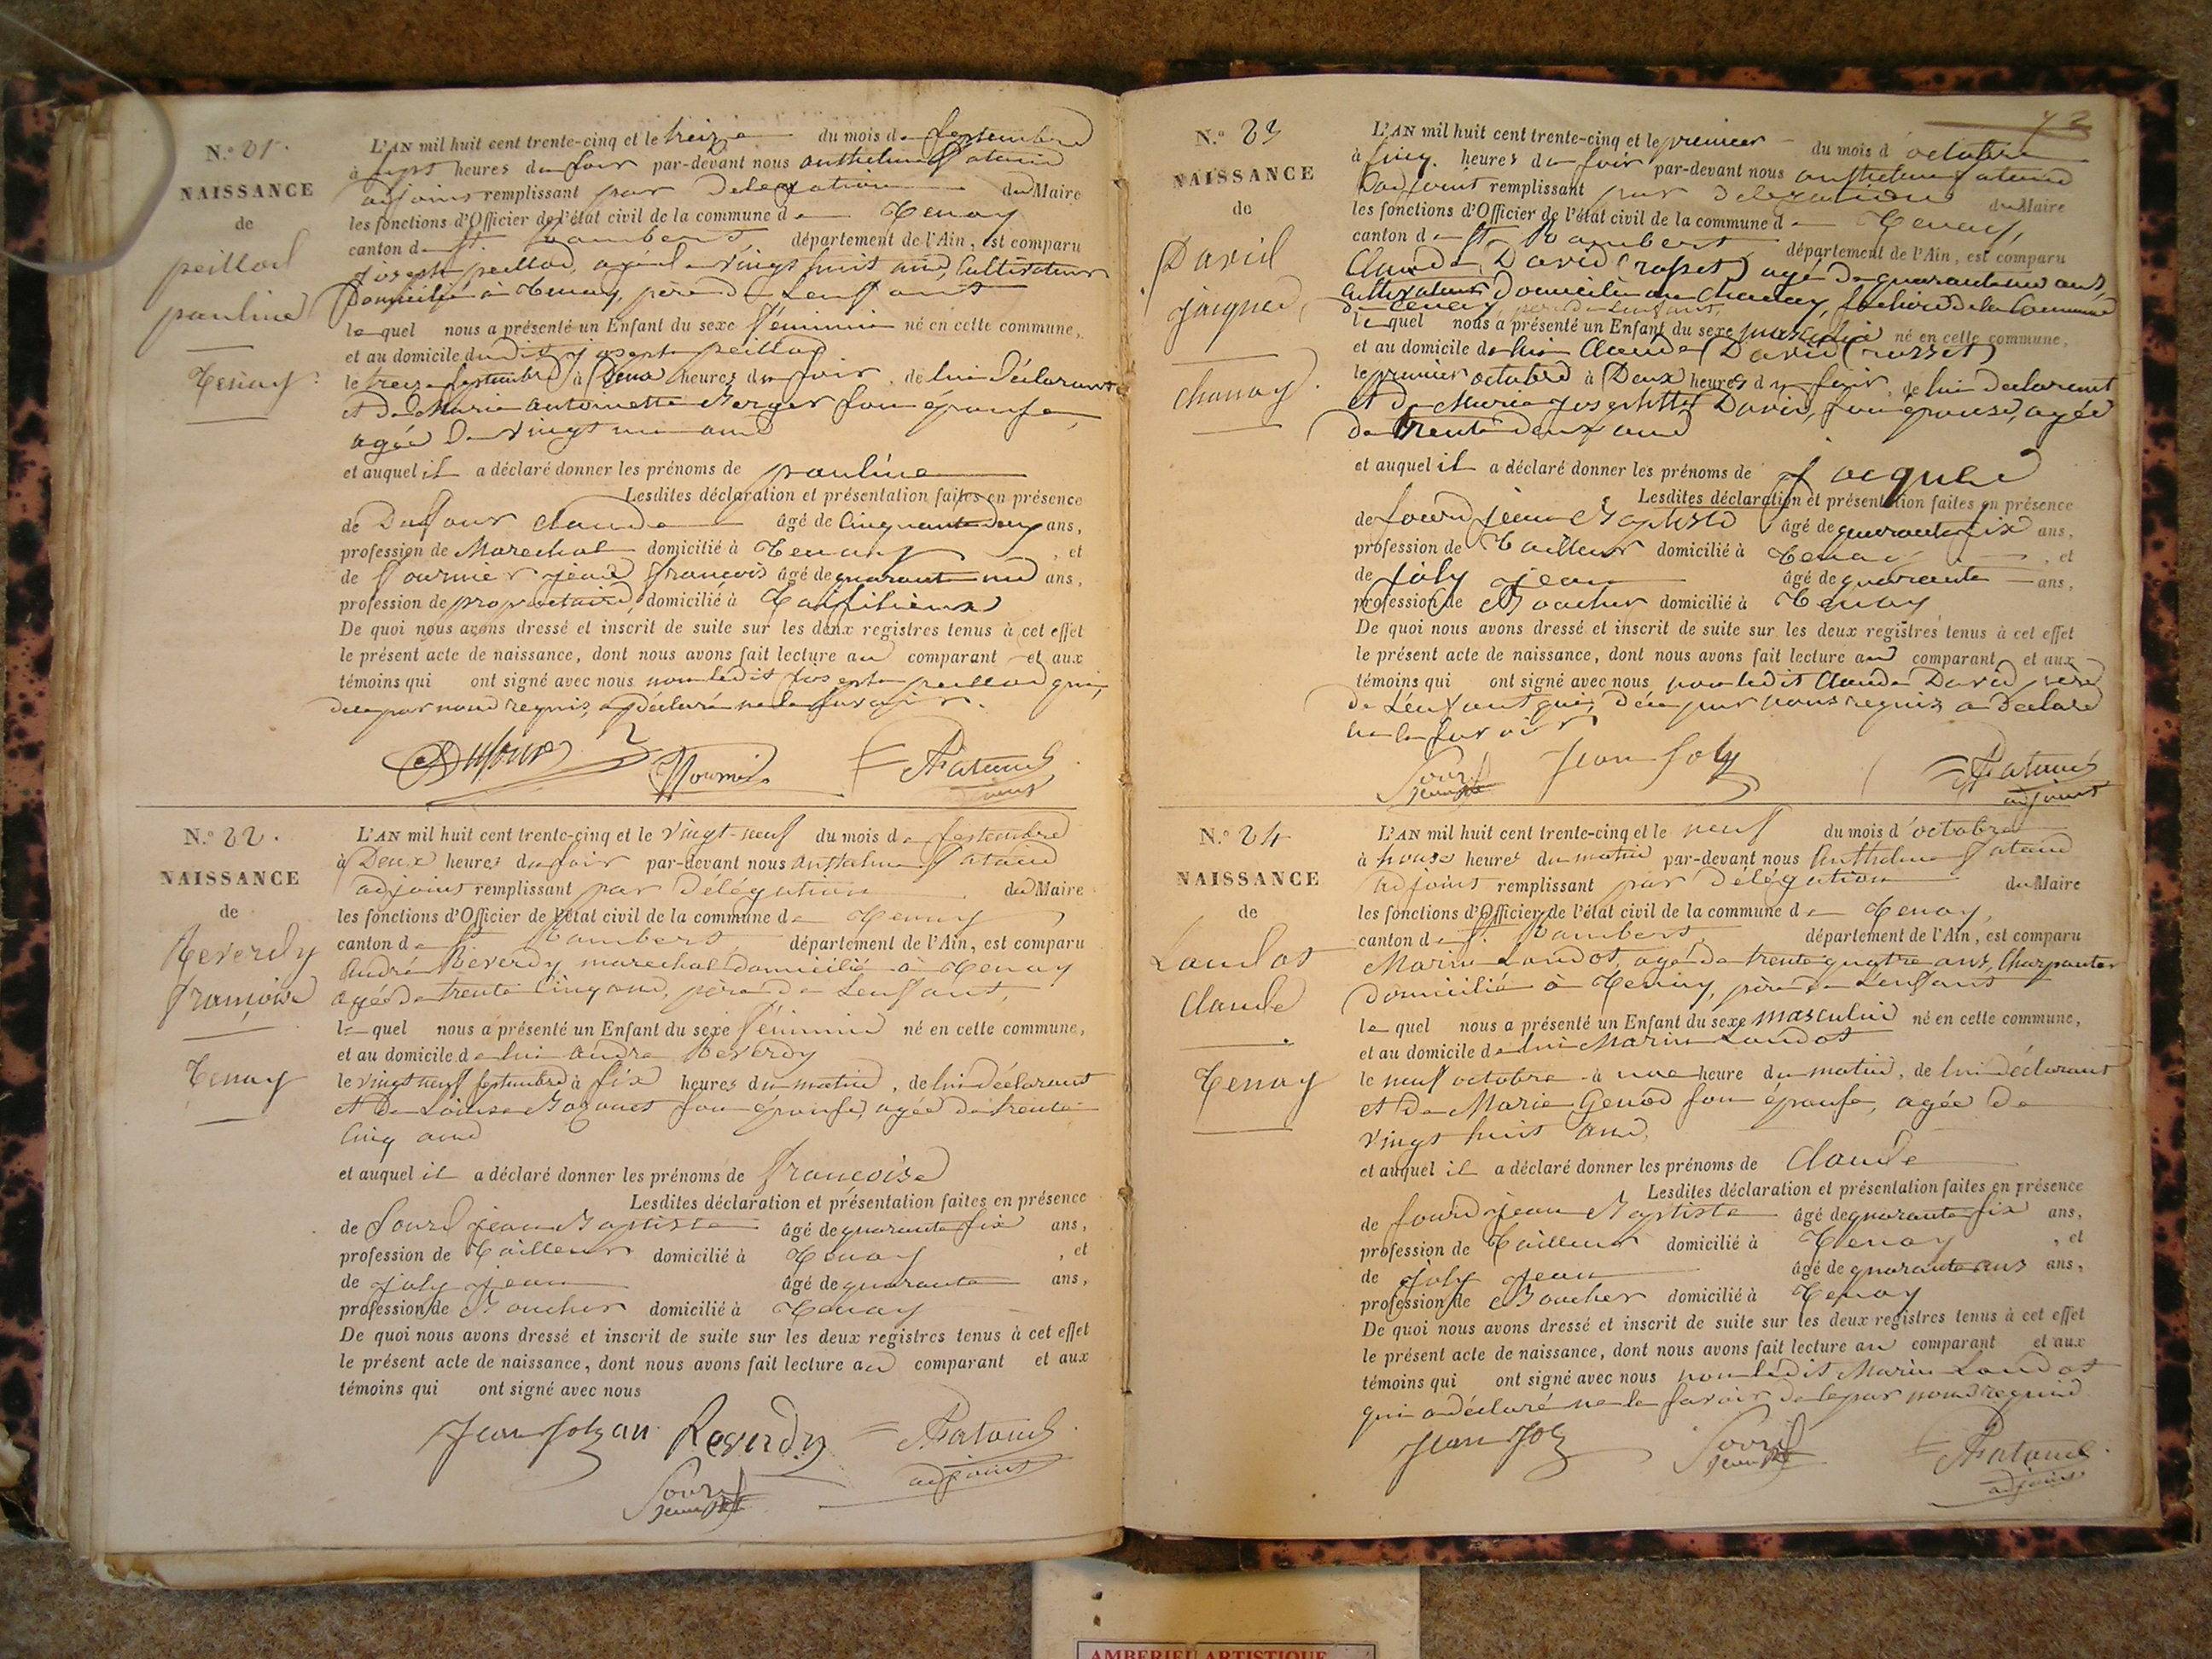 N.º 21.
NAISSANCE
de
peillod
pauline
Tenay
L'AN mil huit cent trente-cinq et le treize du mois de septembre
à sept heures du soir par-devant nous anthelme Pataud
adjoint remplissant par délégation du Maire
les fonctions d'Officier de l'état civil de la commune de Tenay
canton de St. Rambert département de l'Ain, est comparu
Joseph peillod, agé de vingt huit ans, Cultivateur
Domicilié à Tenay, père de L'enfant
lequel nous a présenté un Enfant du sexe féminin né en cette commune,
et au domicile dudit joseph peillod
le treize septembre à Deux heures du soir, de lui Déclarant
et de Marie antoinette Berger son épouse
agée De vingt un ans
et auquel il a déclaré donner les prénoms de pauline
Lesdites déclaration et présentation faites en présence
de Dufour claude âgé de Cinquante Deux ans,
profession de Marechal domicilié à Tenay, et
de fournier jean françois âgé de quarante un ans,
profession de propriétaire domicilié à
De quoi nous avons dressé et inscrit de suite sur les deux registres tenus à cet effet
le présent acte de naissance, dont nous avons fait lecture au comparant et aux
témoins qui ont signé avec nous non ledit joseph peillod qui,
de ce par nous requis, a déclaré ne le savoir.
Dufour fournier Pataud
adjoint
N.º 22.
NAISSANCE
de
Reverdy
françoise
Tenay
L'AN mil huit cent trente-cinq et le vingt-neuf du mois de septembre
à Deux heures du soir par-devant nous anthelme Pataud
adjoint remplissant par délégation du Maire
les fonctions d'Officier de l'état civil de la commune de Tenay
canton de St. Rambert département de l'Ain, est comparu
André Reverdy marechal domicilié à Tenay
agé de trente Cinq ans, père de L'enfant,
lequel nous a présenté un Enfant du sexe féminin né en cette commune,
et au domicile de lui andré Reverdy
le vingt neuf septembre à six heures du matin, de lui Déclarant
et De Louise son épouse, agée de trente
Cinq ans
et auquel il a déclaré donner les prénoms de françoise
Lesdites déclaration et présentation faites en présence
de Sourd jean Baptiste âgé de quarante six ans,
profession de Tailleur domicilié à Tenay, et
de joly jean âgé de quarante ans,
profession de Boucher domicilié à Tenay
De quoi nous avons dressé et inscrit de suite sur les deux registres tenus à cet effet
le présent acte de naissance, dont nous avons fait lecture au comparant et aux
témoins qui ont signé avec nous
Jean Joly an Reverdy Pataud
adjoint
Sourd
N.º 23
NAISSANCE
de
David
jacques
chanay
L'AN mil huit cent trente-cinq et le premier du mois d'octobre
à cinq heures du soir par-devant nous anthelme Pataud
adjoint remplissant par délégation du Maire
les fonctions d'Officier de l'état civil de la commune de Tenay,
canton de St. Rambert département de l'Ain, est comparu
Claude David (rosset) agé de quarante un ans
Cultivateur domicilié au Chanay, section de la Commune
de Tenay, père de L'enfant,
lequel nous a présenté un Enfant du sexe masculin né en cette commune,
et au domicile de lui Claude David (rosset)
le premier octobre à Deux heures du soir, de lui declarant
et De Marie josephte David, son épouse, agée
de trente deux ans
et auquel il a déclaré donner les prénoms de jacques
Lesdites déclaration et présentation faites en présence
de Sourd jean Baptiste âgé de quarante six ans,
profession de Tailleur domicilié à Tenay, et
de joly jean âgé de quarante ans,
profession de Boucher domicilié à Tenay
De quoi nous avons dressé et inscrit de suite sur les deux registres tenus à cet effet
le présent acte de naissance, dont nous avons fait lecture au comparant et aux
témoins qui ont signé avec nous non ledit Claude David père
de L'enfant qui, de ce par nous requis a déclaré
ne le savoir
Sourd Jean Joly Pataud
adjoint
N.º 24
NAISSANCE
de
Landot
claude
Tenay
L'AN mil huit cent trente-cinq et le neuf du mois d'octobre
à heures du matin par-devant nous Anthelme Pataud
adjoint remplissant par délégation du Maire
les fonctions d'Officier de l'état civil de la commune de Tenay,
canton de St. Rambert département de l'Ain, est comparu
Marin Landot, agé de trente quatre ans, Charpentier
Domicilié à Tenay, père de L'enfant
lequel nous a présenté un Enfant du sexe masculin né en cette commune,
et au domicile de lui Marin Landot
le neuf octobre à une heure du matin, de lui déclarant
et De Marie Genod son épouse, agée De
vingt huit ans,
et auquel il a déclaré donner les prénoms de Claude
Lesdites déclaration et présentation faites en présence
de Sourd jean Baptiste âgé de quarante six ans,
profession de Tailleur domicilié à Tenay, et
de joly jean âgé de quarante ans,
profession de Boucher domicilié à Tenay
De quoi nous avons dressé et inscrit de suite sur les deux registres tenus à cet effet
le présent acte de naissance, dont nous avons fait lecture au comparant et aux
témoins qui ont signé avec nous non ledit Marin Landot
qui a déclaré ne le savoir de ce par nous requis
Jean Joly Sourd Pataud
adjoint
AMBERIEU ARTISTIQUE